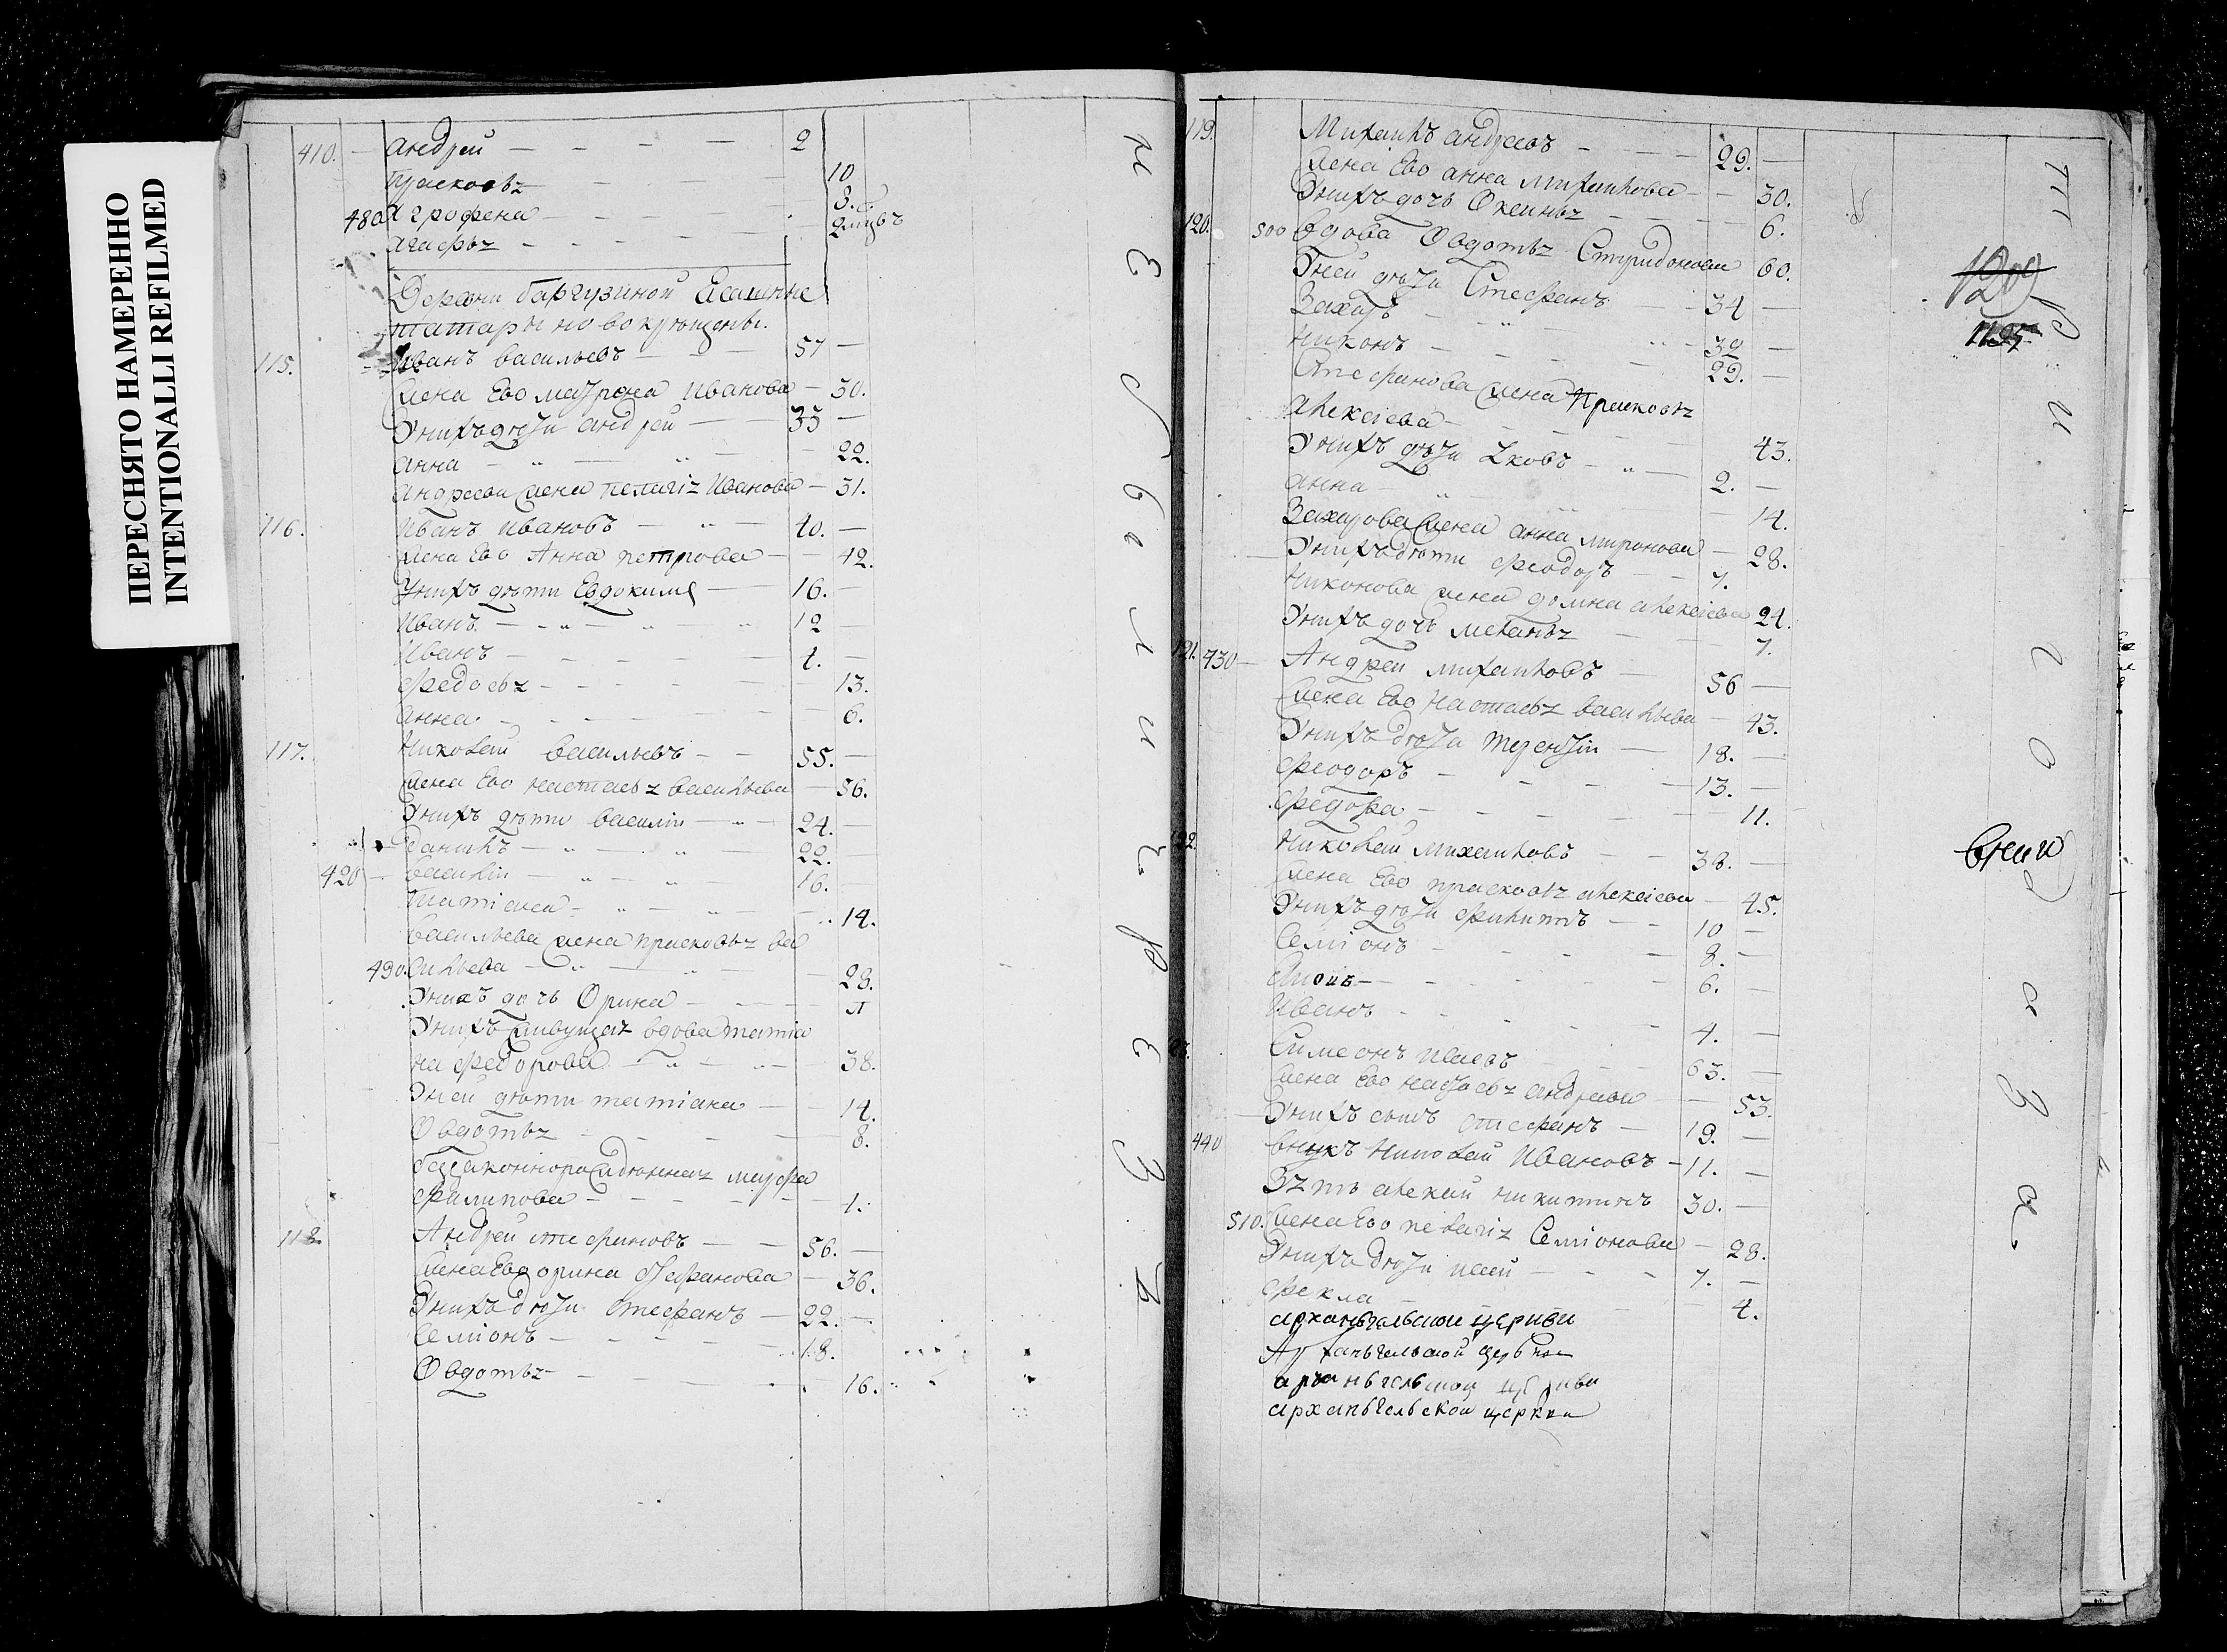 ПЕРЕСНЯТО НАМЕРЕННО
INTENTIONALLI REFILMED
410. андрей 2
прасковья 10
480 агрофена 3.
агафья 2
Деревни баргузиной Ясашные
татары новокрещены.
115. Иванъ васильевъ 57
жена Ево матрона Иванова 30.
Унихъ дѣти андрей 33
анна 22.
андреева жена пелагія Иванова 31.
116. Иванъ Ивановъ 40.
жена Ево Анна петрова 42.
Унихъ дѣти Евдокимъ 16.
Иванъ 12
Иванъ 4.
Федосья 13.
анна 6.
117. Николай васильевъ 55.
жена Ево настасья васильева 56.
Унихъ дѣти василій 24.
данилъ 22.
420 василій 16.
татиана 14.
васильева жена прасковья ва
490. сильева 28.
Унихъ дочь Орина
Унихъ живущая вдова татиа
на федорова 38.
Уней дѣти татиана 14.
Овдотья 8.
беззаконнорожденная марфа
филипова 1.
118. Андрей стефановъ 56.
жена Ево орина стефанова 36.
Унихъ дѣти стефанъ 22.
Семіонъ 18.
Овдотья 16.
119. Михаилъ андреевъ 29.
жена Ево анна михаилова 30.
Унихъ дочь Оксинья 6.
120. 500 вдова Овдотья Спиридонова 60.
Уней дѣти Стефанъ 34
Захаръ 32
Никонъ 29.
Стефанова жена Прасковья
алексіева 43.
Унихъ дѣти Яковъ 2.
анна 14.
Захарова жена анна миронова 28.
Унихъ дѣти феодоръ 7.
Никонова жена домна алексіева 24.
Унихъ дочь меланья 7.
121. 430 Андрей михаиловъ 56
жена Ево настасья васильева 43.
Унихъ дѣти терентій 18.
феодоръ 13.
федора 11.
122 Николай михаиловъ 38.
жена Ево прасковья алексіева 45.
Унихъ дѣти филиппъ 10
Семіонъ 8.
6.
Иванъ 4.
Симеонъ Исаевъ 63.
жена Ево настасья андреева 53.
Унихъ сынъ стефанъ 19.
440 внукъ Николай Ивановъ 11.
Зять алексій никитинъ 30.
510. жена Ево пелагія Семіонова 28.
Унихъ дѣти исай 7.
фекла 4.
архангельской церкви
Архангельской церкви
архангельской церкви
архангельской церкви